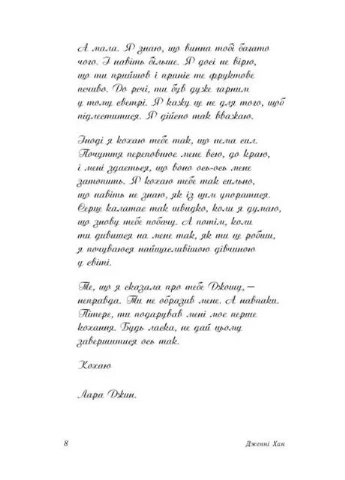 А мала. Я знаю, що винна тобі багато
чого. І навіть більше. Я досі не вірю,
що ти прийшов і приніс те фруктове
печиво. До речі, ти був дуже гарним
у тому светрі. Я кажу це не для того, щоб
підлеститися. Я дійсно так вважаю.
Іноді я кохаю тебе так, що нема сил.
Почуття переповнює мене всю, до краю,
і мені здається, що воно ось-ось мене
затопить. Я кохаю тебе так сильно,
що навіть не знаю, як із цим упоратися.
Серце калатає так швидко, коли я думаю,
що знову тебе побачу. А потім, коли
ти дивишся на мене так, як ти це робиш,
я почуваюся найщасливішою дівчиною
у світі.
Те, що я сказала про тебе Джошу,—
неправда. Ти не образив мене. А навпаки.
Пітере, ти подарував мені моє перше
кохання. Будь ласка, не дай цьому
завершитися ось так.
Кохаю
Лара Джин.
8
Дженні Хан